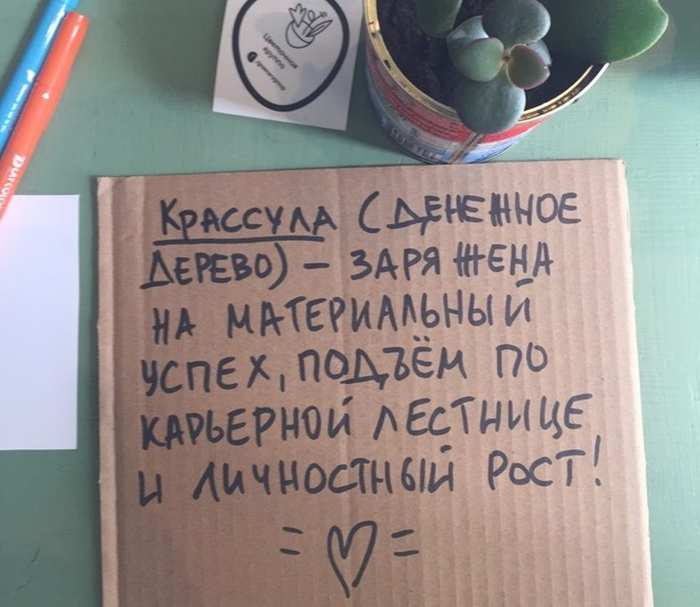 Цветочная
группа
КРАССУЛА (ДЕНЕЖНОЕ
ДЕРЕВО) – ЗАРЯЖЕНА
НА МАТЕРИАЛЬНЫЙ
УСПЕХ, ПОДЪЁМ ПО
КАРЬЕРНОЙ ЛЕСТНИЦЕ
И ЛИЧНОСТНЫЙ РОСТ!
=♡=